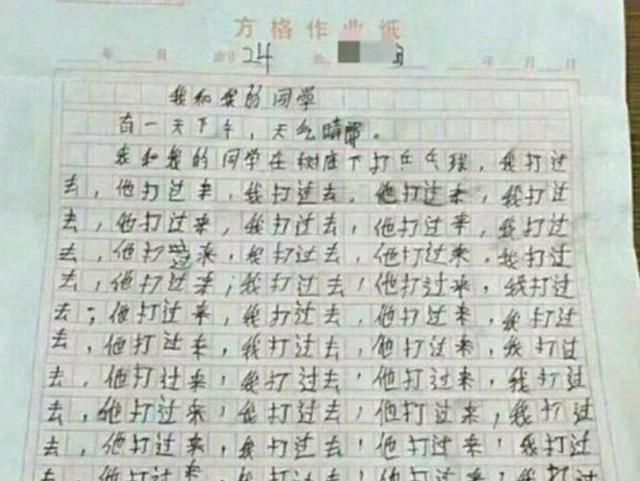 方格作业纸
年 月 24 年 月 日
我和我的同学
有一天下午，天气晴朗。
我和我的同学在树底下打乒乓球，我打过
去，他打过来，我打过去，他打过来，我打过
去，他打过来，我打过去，他打过来，我打过
去，他打过来，我打过去，他打过来，我打过
去，他打过来，我打过去，他打过来，我打过
去，他打过来，我打过去，他打过来，我打过
去，他打过来，我打过去，他打过来，我打过
去，他打过来，我打过去，他打过来，我打过
去，他打过来，我打过去，他打过来，我打过
去，他打过来，我打过去，他打过来，我打过
去，他打过来，我打过去，他打过来，我打过